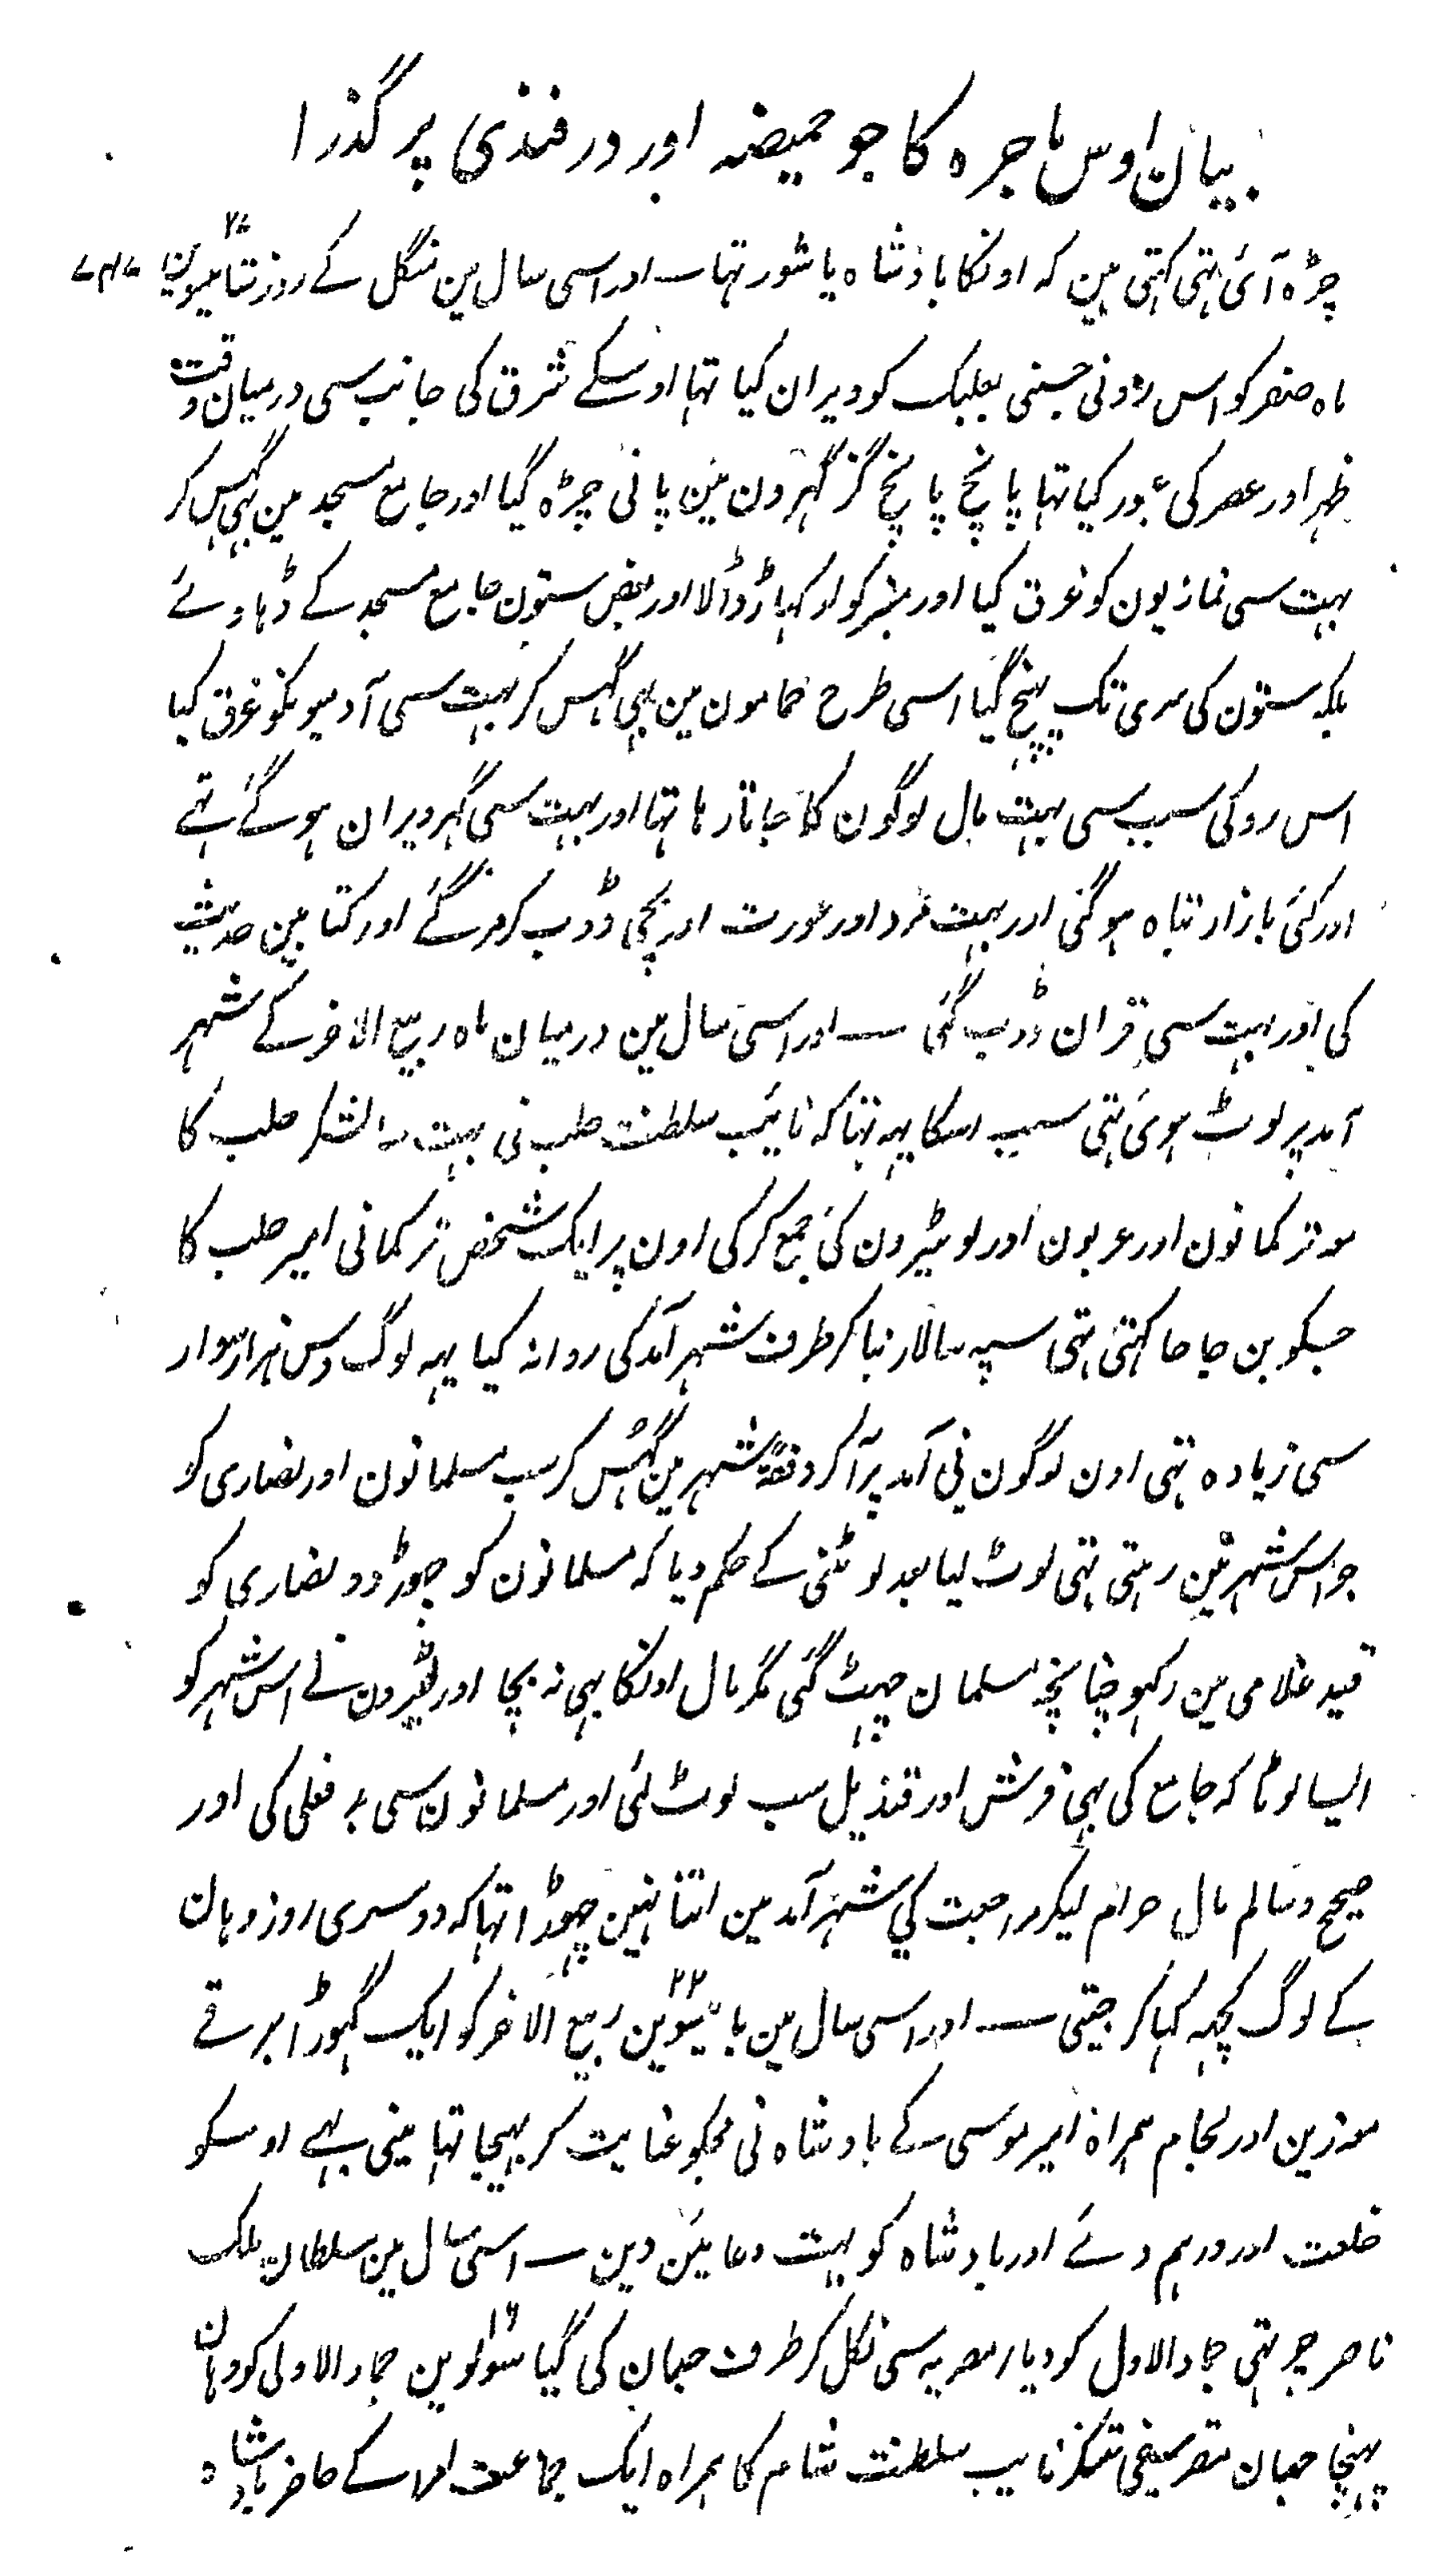 بیان اوس ماجرہ کا جو حمیضہ اور درفندی پر گذرا
چڑہ آئی تہی کہتی ہین کہ اونکا بادشاہ یاشور تہا ــ اور اسی سال مین منگل کے روز ستائیسوین ۲۷
ماہ صفر کو اس رونی جسنی بعلبک کو ویران کیا تہا اوسکے شرق کی جانب سی درمیان وقت
ظہر اور عصر کی عبور کیا تہا پانچ پانچ گز گہرون مین پانی چڑہ گیا اور جامع مسجد مین بہی گہس کر
بہت سی نمازیون کو غرق کیا اور منبر کو اوکہاڑ ڈالا اور بعض ستون جامع مسجد کے ڈہا دئے
بلکہ ستون کی سری تک پہنچ گیا اسی طرح حمامون مین بہی گہس کر بہت سی آدمیونکو غرق کیا
اس رو کی سبب سی بہت مال لوگون کا جاتا رہا تہا اور بہت سی گہر ویران ہو گئے تہے
اور کئی بازار تباہ ہو گئی اور بہت مرد اور عورت اور بچی ڈوب کر مر گئے اور کتابین حدیث
کی اور بہت سی قران ڈوب گئی ــ اور اسی سال مین درمیان ماہ ربیع الاخر کے شہر
آمد پر لوٹ ہوئی تہی سبب اسکا یہہ تہا کہ نائب سلطنت حلب نی بہت سا لشکر حلب کا
معہ ترکمانون اور عربون اور لوٹیرون کی جمع کر کی اون پر ایک شخص ترکمانی امیر حلب کا
جسکو بن جاجا کہتی تہی سپہ سالار بنا کر طرف شہر آمد کی روانہ کیا یہہ لوگ دس ہزار سوار
سی زیادہ تہی اون لوگون نی آمد پر آ کر دفعۃً شہر مین گہس کر سب مسلمانون اور نصاری کو
جو اس شہر مین رہتی تہی لوٹ لیا بعد لوٹنی کے حکم دیا کہ مسلمانون کو چہوڑ دو نصاری کو
قید غلامی مین رکہو چنانچہ مسلمان چہٹ گئی مگر مال اونکا بہی نہ بچا اور لٹیرون نے اس شہر کو
ایسا لوٹا کہ جامع کی بہی فرش اور قندیل سب لوٹ لئی اور مسلمانون سی بد فعلی کی اور
صحیح و سالم مال حرام لیکر مراجعت کی شہر آمد مین اتنا نہین چہوڑا تہا کہ دوسری روز وہان
کے لوگ کچہہ کہا کر جیتی ــ اور اسی سال مین بائیسوین ۲۲ ربیع الاخر کو ایک گہوڑا ابرقے
معہ زین اور لجام ہمراہ امیر موسی کے بادشاہ نی مجکو عنایت کر بہیجا تہا مینی بہے اوسکو
خلعت اور درہم دئے اور بادشاہ کو بہت دعائین دین ــ اسی سال مین سلطان ملک
ناصر چوتہی جماد الاول کو دیار مصریہ سی نکل کر طرف حبان کی گیا سولوین ۱۶ جماد الاولی کو وہان
پہنچا جہان مقر سیفی تنکز نایب سلطنت شام کا ہمراہ ایک جماعت امرا کے حاضر بادشاہ